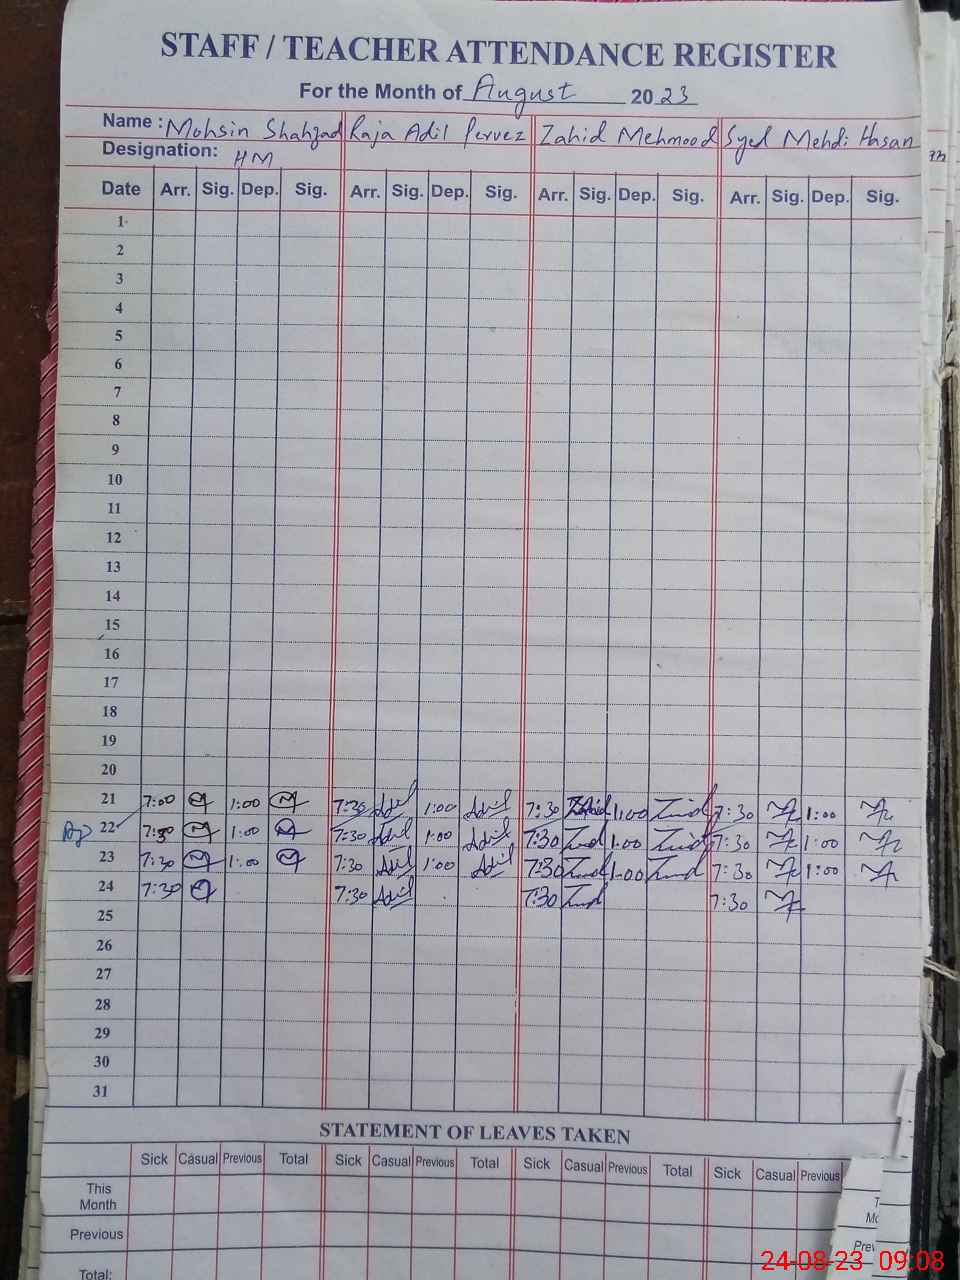 STAFF / TEACHER ATTENDANCE REGISTER
For the Month of August 2023
Name : Mohsin Shahzad Raja Adil Pervez Zahid Mehmood Syed Mehdi Hasan
Designation: HM
Date Arr. Sig. Dep. Sig. Arr. Sig. Dep. Sig. Arr. Sig. Dep. Sig. Arr. Sig. Dep. Sig.
1
2
3
4
5
6
7
8
9
10
11
12
13
14
15
16
17
18
19
20
21 7:00 M 1:00 M 7:30 Adil 1:00 Adil 7:30 Zahid 1:00 7:30 1:00
22 7:30 M 1:00 M 7:30 Adil 1:00 Adil 7:30 1:00 7:30 1:00
23 7:30 M 1:00 M 7:30 Adil 1:00 Adil 7:30 1:00 7:30 1:00
24 7:30 M 7:30 Adil 7:30 7:30
25
26
27
28
29
30
31
STATEMENT OF LEAVES TAKEN
Sick Casual Previous Total Sick Casual Previous Total Sick Casual Previous Total Sick Casual Previous
This Month
Previous
Total:
24-08-23 09:08